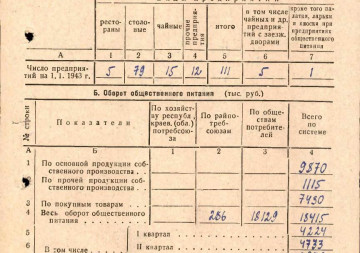 ресто-
раны
столо-
вые
чайные
прочие
предприя-
тия
итого
в том числе
чайных и др.
предприя-
тий с заезж.
дворами
кроме того па-
латок, ларьков
и киоски при
предприятиях
общественного
питания
А 1 2 3 4 5 6 7
Число предприя-
тий на 1, I. 1943 г. 5 79 15 12 111 5 1
Б. Оборот общественного питания (тыс. руб.)
№ строки
Показатели
По хозяйст-
ву республ.,
краев. (обл.)
потребсою-
за
По райпо-
треб-
союзам
По обще-
ствам
потребите-
лей
Всего
по
системе
А Б 1 2 3 4
1 По основной продукции соб-
ственного производства 9870
2 По прочей продукции соб-
ственного производства 1115
3 По покупным товарам 7430
4 Весь оборот общественного
питания 286 18129 18415
5 I квартал 4224
6 В том числе II квартал 4733